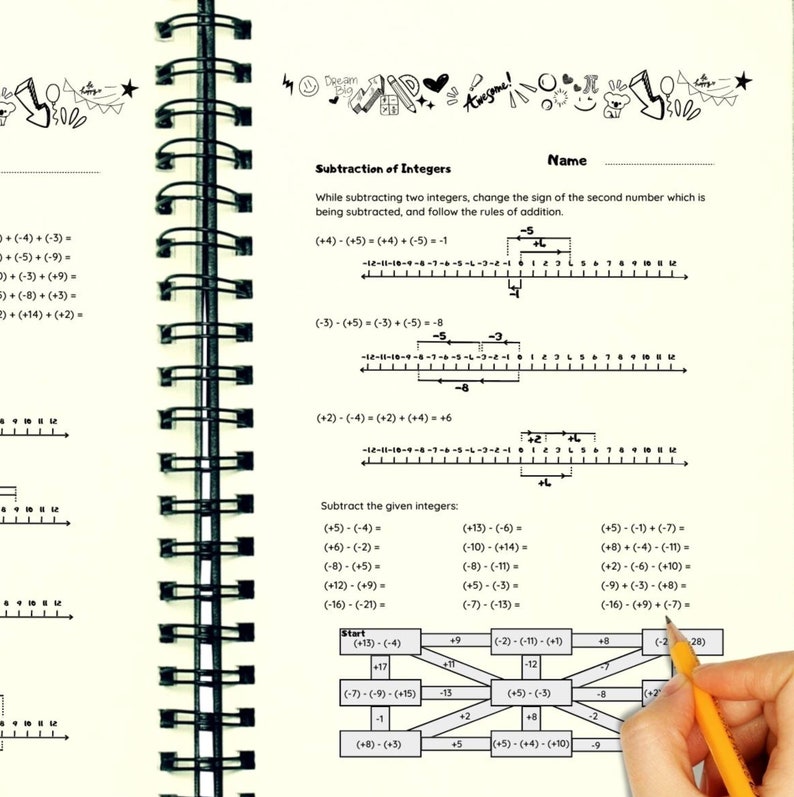 ) + (-4) + (-3) =
) + (-5) + (-9) =
) + (-3) + (+9) =
) + (-8) + (+3) =
) + (+14) + (+2) =
8 9 10 11 12
8 9 10 11 12
8 9 10 11 12
8 9 10 11 12
Dream Big
Awesome!
π
be happy
Name
Subtraction of Integers
While subtracting two integers, change the sign of the second number which is
being subtracted, and follow the rules of addition.
(+4) - (+5) = (+4) + (-5) = -1
-5
+4
-12 -11 -10 -9 -8 -7 -6 -5 -4 -3 -2 -1 0 1 2 3 4 5 6 7 8 9 10 11 12
-1
(-3) - (+5) = (-3) + (-5) = -8
-5 -3
-12 -11 -10 -9 -8 -7 -6 -5 -4 -3 -2 -1 0 1 2 3 4 5 6 7 8 9 10 11 12
-8
(+2) - (-4) = (+2) + (+4) = +6
+2 +4
-12 -11 -10 -9 -8 -7 -6 -5 -4 -3 -2 -1 0 1 2 3 4 5 6 7 8 9 10 11 12
+4
Subtract the given integers:
(+5) - (-4) = (+13) - (-6) = (+5) - (-1) + (-7) =
(+6) - (-2) = (-10) - (+14) = (+8) + (-4) - (-11) =
(-8) - (+5) = (-8) - (-11) = (+2) - (-6) - (+10) =
(+12) - (+9) = (+5) - (-3) = (-9) + (-3) - (+8) =
(-16) - (-21) = (-7) - (-13) = (-16) - (+9) + (-7) =
Start
(+13) - (-4) +9 (-2) - (-11) - (+1) +8 (-2 28)
+17 +11 -12 -7
(-7) - (-9) - (+15) -13 (+5) - (-3) -8 (+2
-1 +2 +8 -2
(+8) - (+3) +5 (+5) - (+4) - (+10) -9